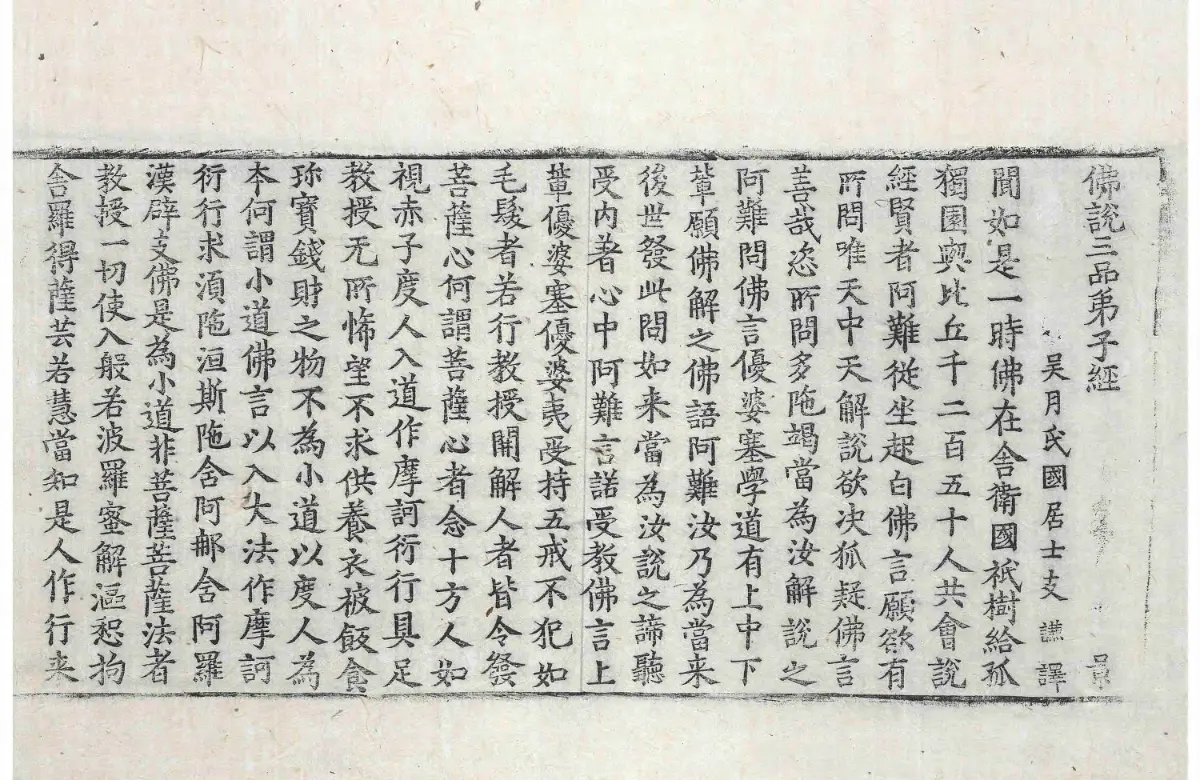 佛說三品弟子經 景
吳月氏國居士支謙譯
聞如是一時佛在舍衛國祇樹給孤
獨園與比丘千二百五十人共會說
經賢者阿難從坐起白佛言願欲有
所問唯天中天解說欲決狐疑佛言
善哉恣所問多陁竭當為汝解說之
阿難問佛言優婆塞學道有上中下
輩願佛解之佛語阿難汝乃為當来
後世發此問如来當為汝說之諦聽
受内著心中阿難言諾受教佛言上
輩優婆塞優婆夷受持五戒不犯如
毛髮者若行教授開解人者皆令發
菩薩心何謂菩薩心者念十方人如
視赤子度人入道作摩訶衍行具足
教授无所悕望不求供養衣被飯食
珎寶錢財之物不為小道以度人為
本何謂小道佛言以入大法作摩訶
衍行求湏陁洹斯陁含阿那含阿羅
漢辟支佛是為小道非菩薩菩薩法者
教授一切使入般若波羅蜜解漚恕拘
舍羅得薩芸若慧當知是人作行来